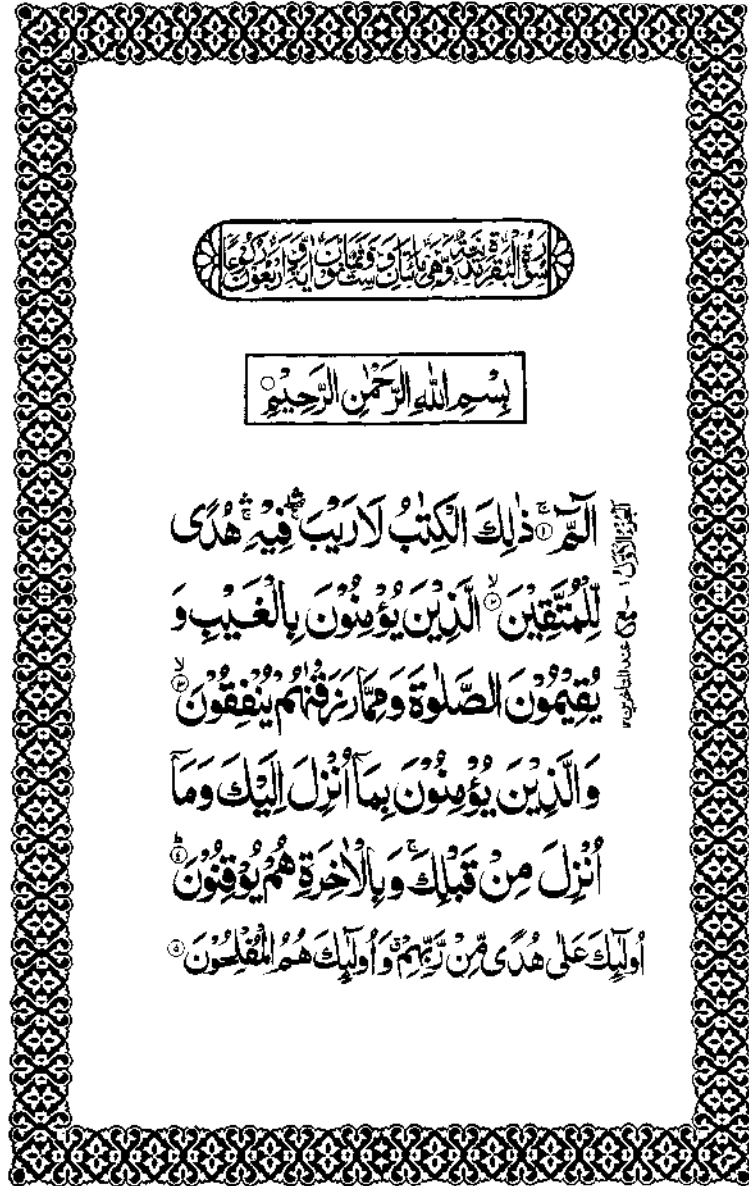 سُوْرَةُ الْبَقَرَةِ مَدَنِيَّةٌ وَّهِيَ مِائَتَانِ وَسِتٌّ وَّثَمَانُوْنَ اٰيَةً وَّاَرْبَعُوْنَ رُكُوْعًا
بِسْمِ اللّٰهِ الرَّحْمٰنِ الرَّحِيْمِ
الٓمّٓ ۚ﴿۱﴾ ذٰلِكَ الْكِتٰبُ لَا رَيْبَ ۛۚ فِيْهِ ۛۚ هُدًى
لِّلْمُتَّقِيْنَ ۙ﴿۲﴾ الَّذِيْنَ يُؤْمِنُوْنَ بِالْغَيْبِ وَ
يُقِيْمُوْنَ الصَّلٰوةَ وَمِمَّا رَزَقْنٰهُمْ يُنْفِقُوْنَ ۙ﴿۳﴾
وَالَّذِيْنَ يُؤْمِنُوْنَ بِمَاۤ اُنْزِلَ اِلَيْكَ وَمَاۤ
اُنْزِلَ مِنْ قَبْلِكَ ۚ وَبِالْاٰخِرَةِ هُمْ يُوْقِنُوْنَ ؕ﴿۴﴾
اُولٰٓئِكَ عَلٰى هُدًى مِّنْ رَّبِّهِمْ ۗ وَاُولٰٓئِكَ هُمُ الْمُفْلِحُوْنَ ﴿۵﴾
الجزء الاول ۱
مع عند المتأخرين ۱۲